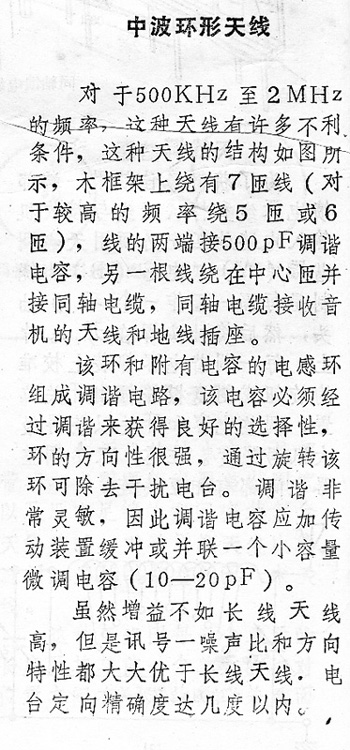 中波环形天线
对于500KHz至2MHz
的频率，这种天线有许多不利
条件，这种天线的结构如图所
示，木框架上绕有7匝线（对
于较高的频率绕5匝或6
匝），线的两端接500pF调谐
电容，另一根线绕在中心匝并
接同轴电缆，同轴电缆接收音
机的天线和地线插座。
该环和附有电容的电感环
组成调谐电路，该电容必须经
过调谐来获得良好的选择性，
环的方向性很强，通过旋转该
环可除去干扰电台。调谐非
常灵敏，因此调谐电容应加传
动装置缓冲或并联一个小容量
微调电容（10—20pF）。
虽然增益不如长线天线
高，但是讯号一噪声比和方向
特性都大大优于长线天线．电
台定向精确度达几度以内。